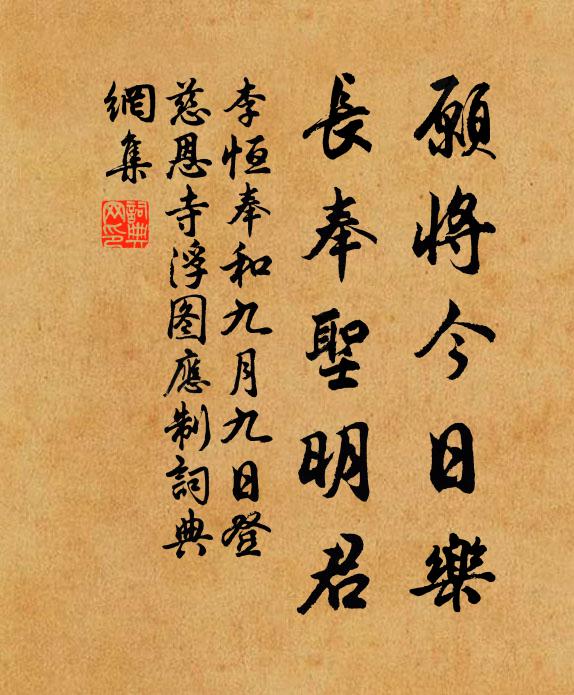 願將今日樂
長奉聖明君
李恒奉和九月九日登
慈恩寺浮图應制詞典
網集
詞典
网印